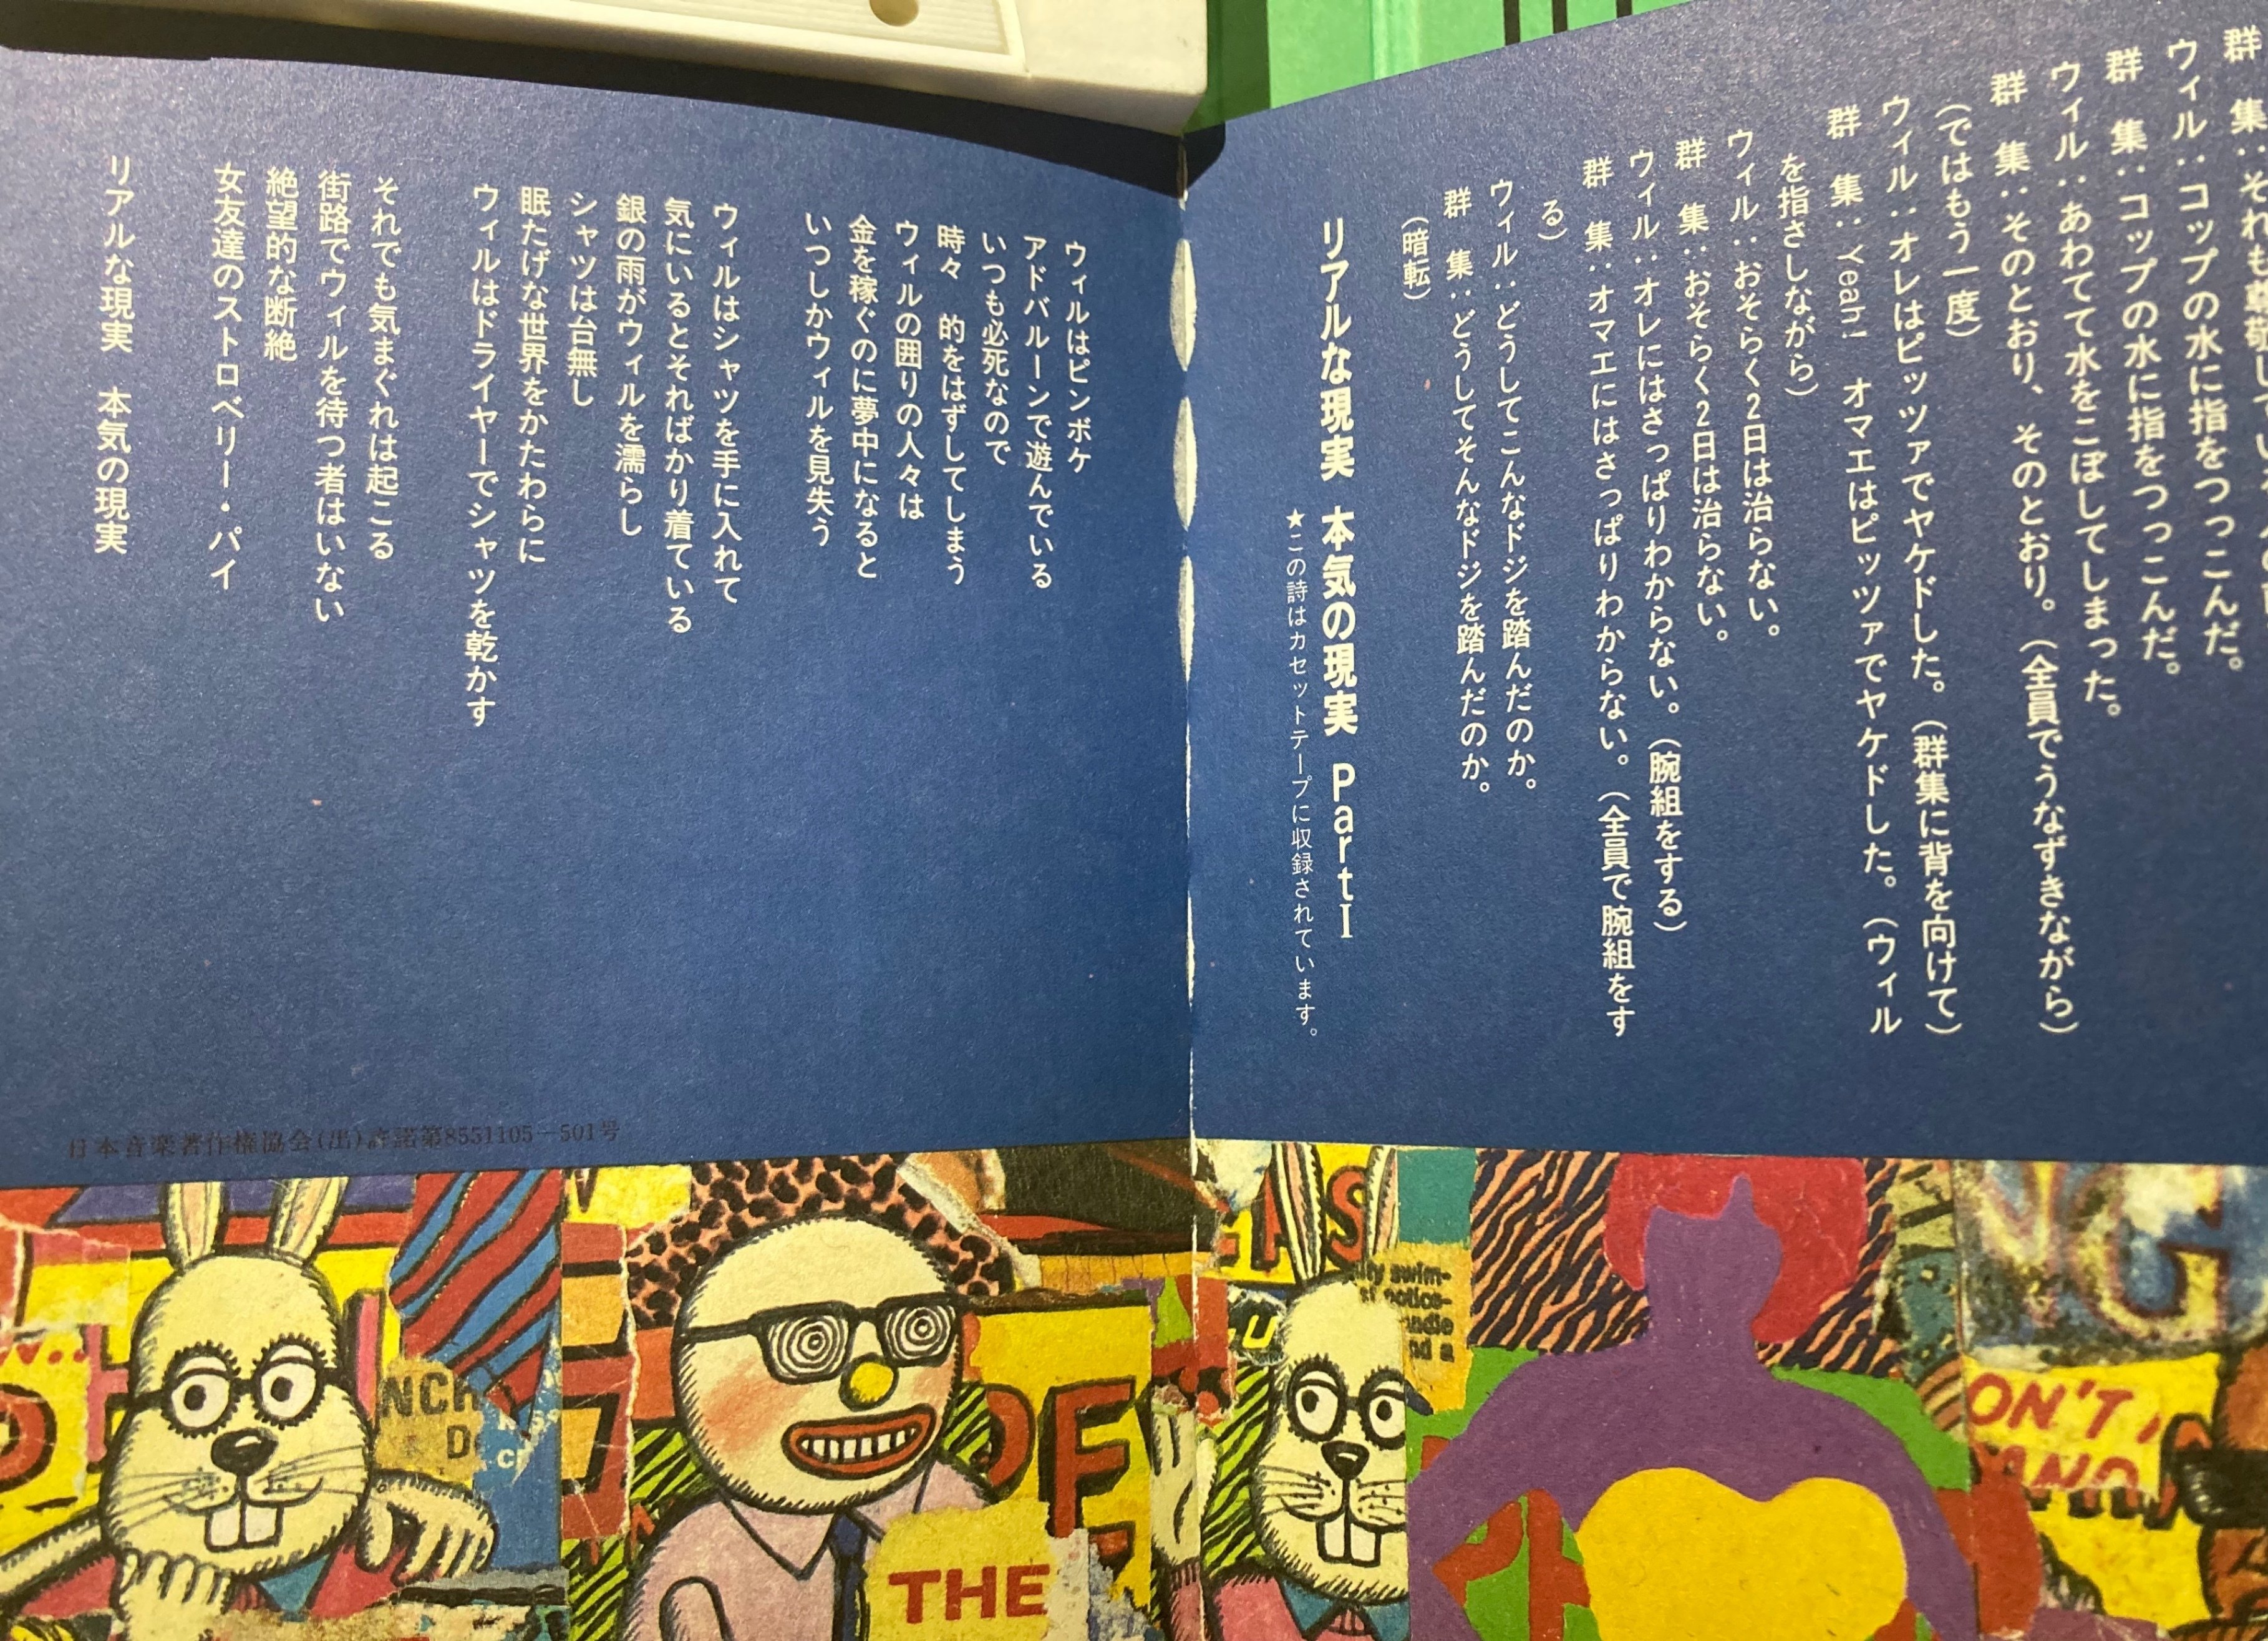 群　集：それも
ウィル：コップの水に指をつっこんだ。
群　集：コップの水に指をつっこんだ。
ウィル：あわてて水をこぼしてしまった。
群　集：そのとおり、そのとおり。（全員でうなずきながら）
（ではもう一度）
ウィル：オレはピッツァでヤケドした。（群集に背を向けて）
群　集：Yeah!　オマエはピッツァでヤケドした。（ウィル
を指さしながら）
ウィル：おそらく2日は治らない。
群　集：おそらく2日は治らない。
ウィル：オレにはさっぱりわからない。（腕組をする）
群　集：オマエにはさっぱりわからない。（全員で腕組をす
る）
ウィル：どうしてこんなドジを踏んだのか。
群　集：どうしてそんなドジを踏んだのか。
（暗転）
リアルな現実　本気の現実　Part I
★この詩はカセットテープに収録されています。
ウィルはピンボケ
アドバルーンで遊んでいる
いつも必死なので
時々　的をはずしてしまう
ウィルの囲りの人々は
金を稼ぐのに夢中になると
いつしかウィルを見失う
ウィルはシャツを手に入れて
気にいるとそればかり着ている
銀の雨がウィルを濡らし
シャツは台無し
眠たげな世界をかたわらに
ウィルはドライヤーでシャツを乾かす
それでも気まぐれは起こる
街路でウィルを待つ者はいない
絶望的な断絶
女友達のストロベリー・パイ
リアルな現実　本気の現実
日本音楽著作権協会(出)許諾第8551105－501号
NCH
THE
swim-
notice-
nd a
ON'T